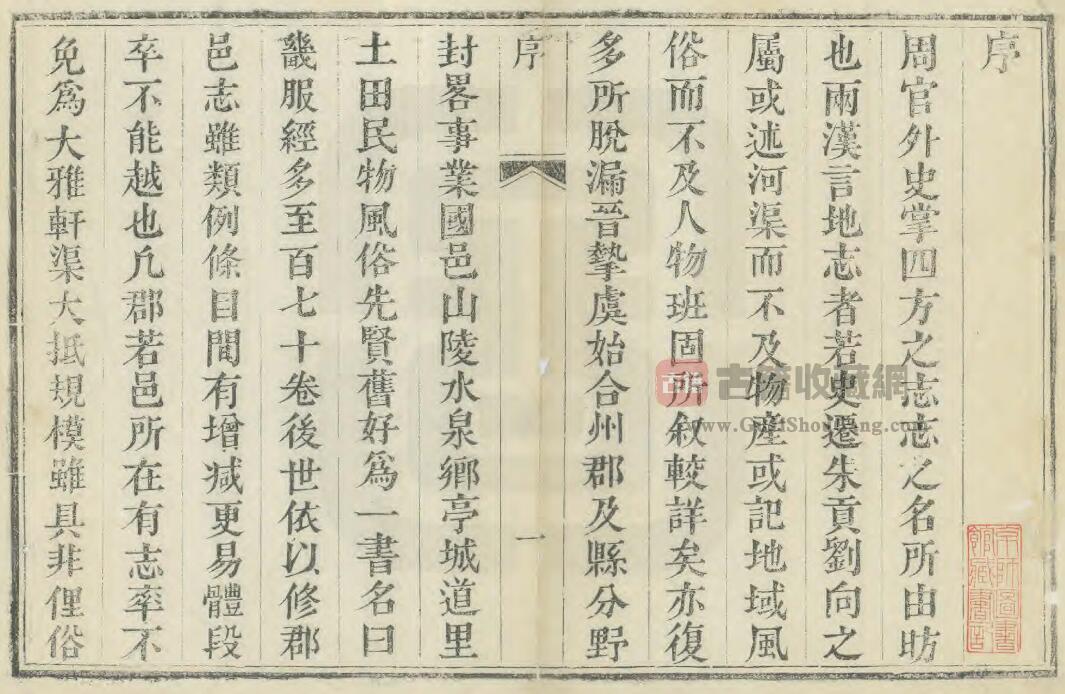 序
周官外史掌四方之志志之名所由昉
也兩漢言地志者若史遷朱貢劉向之
屬或述河渠而不及物產或記地域風
俗而不及人物班固所敘較詳矣亦復
多所脫漏晉摯虞始合州郡及縣分野
序 一
封畧事業國邑山陵水泉鄉亭城道里
土田民物風俗先賢舊好為一書名曰
畿服經多至百七十卷後世依以修郡
邑志雖類例條目間有增減更易體段
卒不能越也凡郡若邑所在有志率不
免爲大雅軒渠大抵規模雖具非俚俗
古籍收藏網